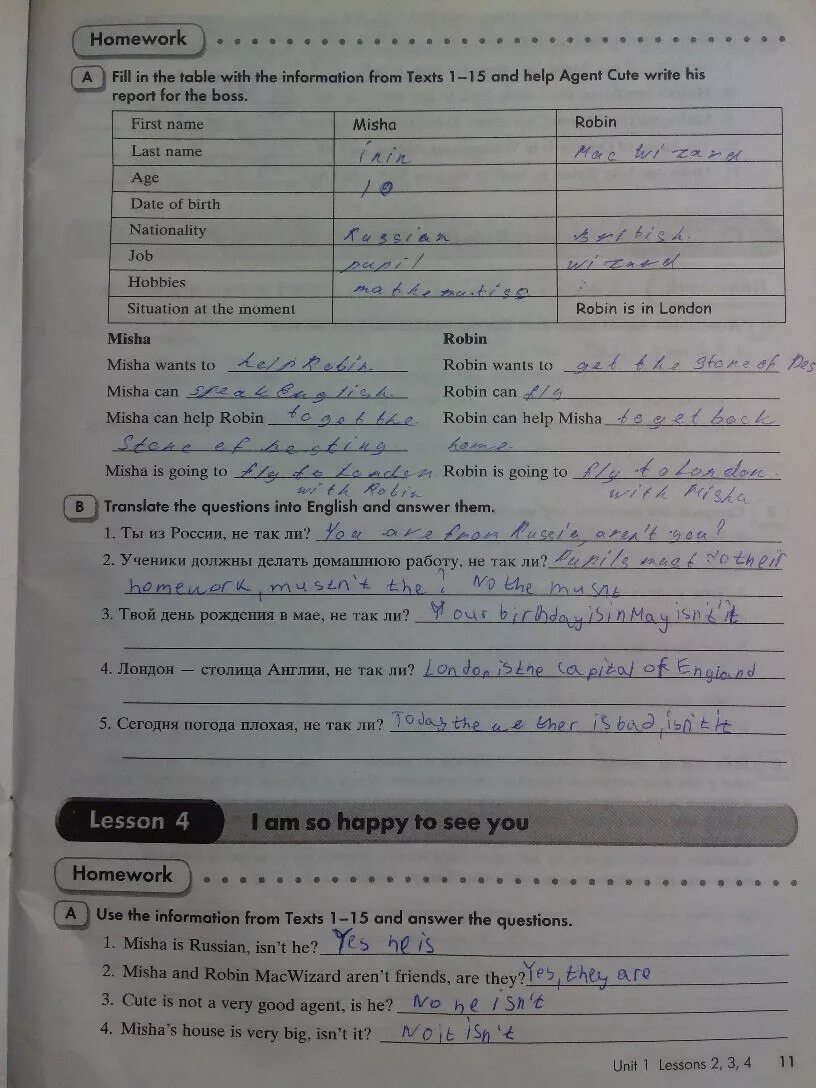 Homework
A Fill in the table with the information from Texts 1–15 and help Agent Cute write his
report for the boss.
First name Misha Robin
Last name inin Mac Wizard
Age 10
Date of birth
Nationality Russian British.
Job pupil wizard
Hobbies mathematiso
Situation at the moment Robin is in London
Misha Robin
Misha wants to help Robin. Robin wants to get the stone of Des
Misha can speak English. Robin can fly
Misha can help Robin to get the Robin can help Misha to get back
Stone of hesting home.
Misha is going to fly to London Robin is going to fly to London.
with Robin with Misha
B Translate the questions into English and answer them.
1. Ты из России, не так ли? You are from Russia aren't you?
2. Ученики должны делать домашнюю работу, не так ли? Pupils must do their
homework, mustn't the? No the musnt
3. Твой день рождения в мае, не так ли? Your birthday is in May isn't it
4. Лондон — столица Англии, не так ли? London is the capital of England
5. Сегодня погода плохая, не так ли? Today the we ther is bad, isn't it
Lesson 4 I am so happy to see you
Homework
A Use the information from Texts 1–15 and answer the questions.
1. Misha is Russian, isn't he? Yes he is
2. Misha and Robin MacWizard aren't friends, are they? Yes, they are
3. Cute is not a very good agent, is he? No he isn't
4. Misha's house is very big, isn't it? No it isn't
Unit 1 Lessons 2, 3, 4 11